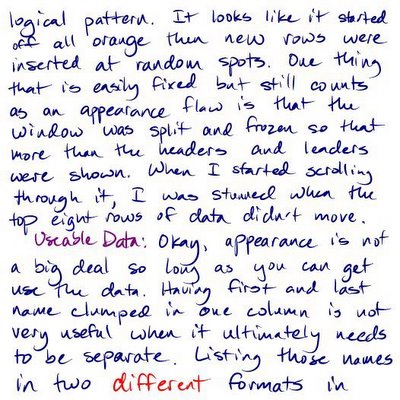 logical pattern. It looks like it started
off all orange then new rows were
inserted at random spots. One thing
that is easily fixed but still counts
as an appearance flaw is that the
window was split and frozen so that
more than the headers and leaders
were shown. When I started scrolling
through it, I was stunned when the
top eight rows of data didn't move.
Useable Data: Okay, appearance is not
a big deal so long as you can get
use the data. Having first and last
name clumped in one column is not
very useful when it ultimately needs
to be separate. Listing those names
in two different formats in